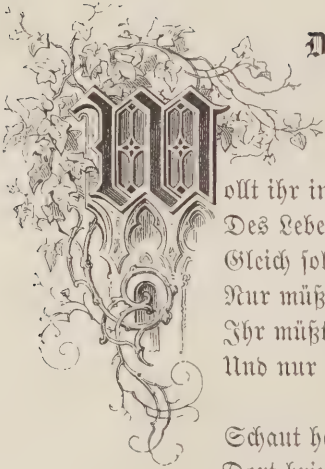 D
W
ollt ihr in
Des Lebe
Gleich sol
Nur müß
Ihr müßt
Und nur
Schaut he